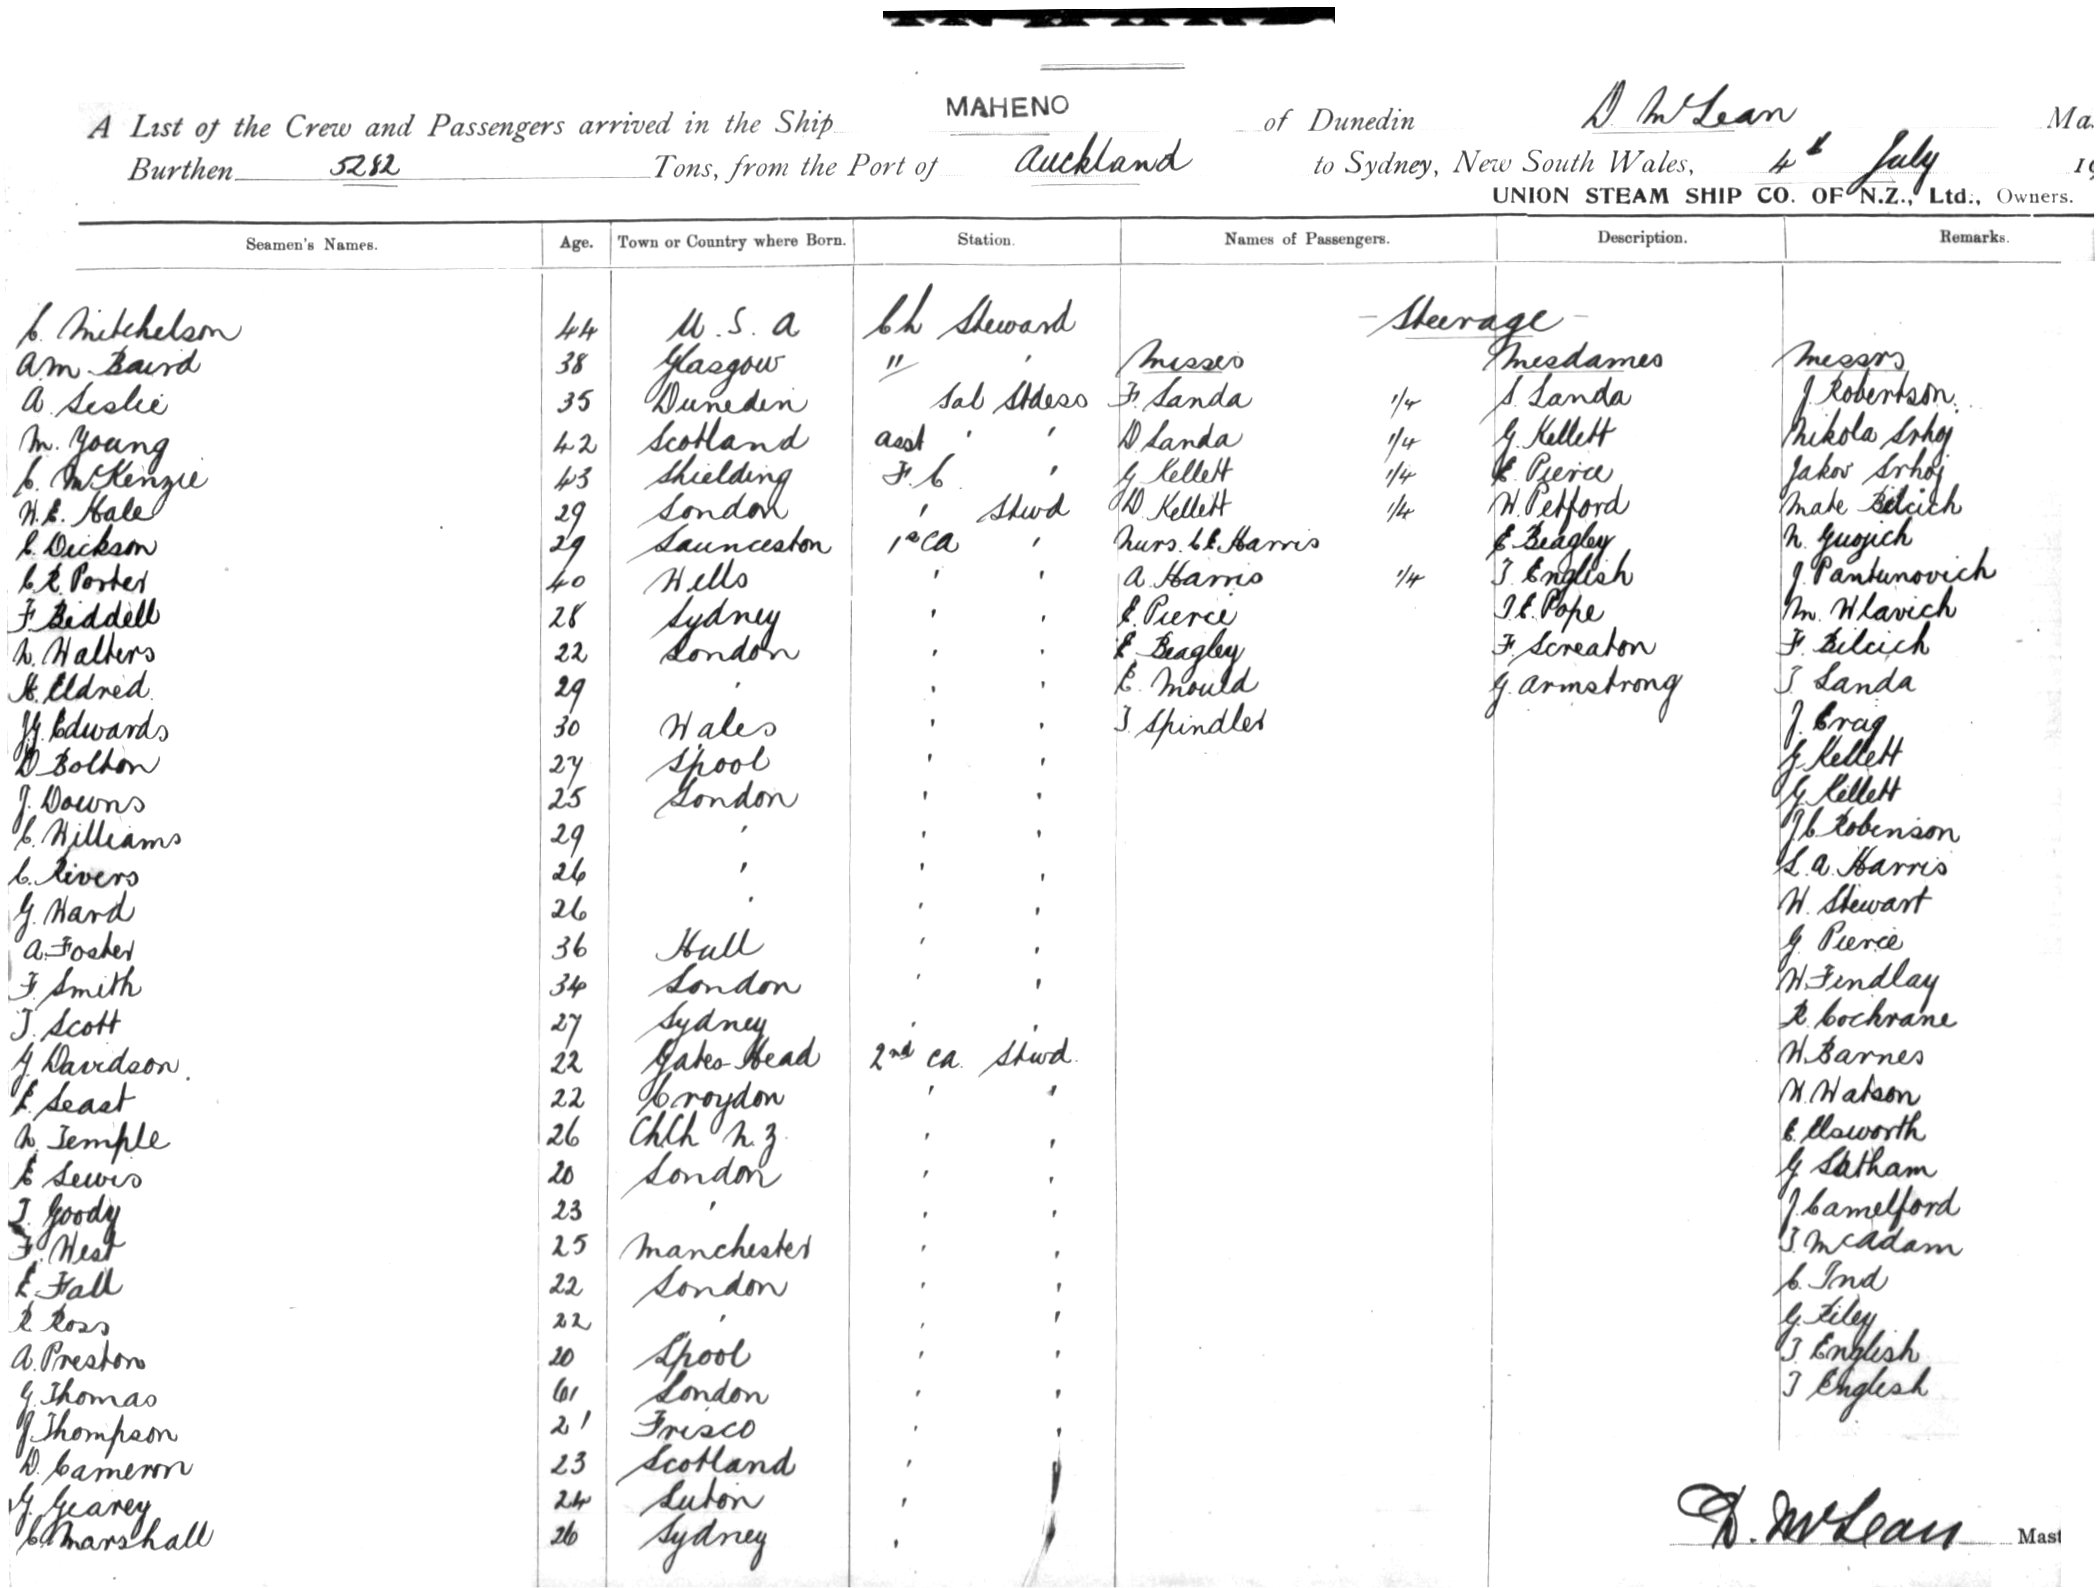 A List of the Crew and Passengers arrived in the Ship MAHENO of Dunedin D. McLean Ma
Burthen 5282 Tons, from the Port of Auckland to Sydney, New South Wales, 4th July 19
UNION STEAM SHIP CO. OF N.Z., Ltd., Owners.
Seamen's Names. Age. Town or Country where Born. Station. Names of Passengers. Description. Remarks.
C. Mitchelson 44 U.S.A Ch Steward - Steerage -
A.M. Baird 38 Glasgow " ' Misses Mesdames Messrs
A. Leslie 35 Dunedin Sal Stdess F. Landa 1/4 S. Landa J. Robertson.
M. Young 42 Scotland asst ' ' D Landa 1/4 G. Kellett Nikola Srhoj
C. McKenzie 43 Shielding F.C. ' G Kellett 1/4 E. Pierce Jakov Srhoj
W.E. Hale 29 London ' Stwd D. Kellett 1/4 W. Petford Mate Bilcich
E. Dickson 29 Launceston 1st ca ' Nurs. C.E. Harris E. Beagley N.
C R Porter 40 Wells ' ' A Harris 1/4 T. English J. Pantunovich
F. Biddell 28 Sydney ' ' E. Pierce T.E. Pope M. Wlavich
N. Walters 22 London ' ' E Beagley F. Screaton F. Bilcich
H. Eldred. 29 ' ' ' E. Mould G. Armstrong T Landa
J.G. Edwards 30 Wales ' ' T. Spindler J. Craig
D Bolton 27 L'pool ' ' G. Kellett
J. Downs 25 London ' ' G. Kellett
C. Williams 29 ' ' ' J C Robinson
C. Rivers 26 ' ' ' L. A. Harris
G. Ward 26 ' ' ' W. Stewart
A. Foster 36 Hull ' ' G. Pierce
F. Smith 34 London ' ' W. Findlay
T. Scott 27 Sydney ' ' R. Cochrane
G. Davidson. 22 Gates-Head 2nd ca. Stwd. W. Barnes
E. Seast 22 Croydon ' ' W. Watson
N. Temple 26 ChCh N.Z. ' ' E. Elsworth
E Lewis 20 London ' ' G Latham
T. Goody 23 ' ' ' J. Camelford
F. West 25 Manchester ' ' T. McAdam
E. Fall 22 London ' ' C. Ind
R Ross 22 ' ' ' G.
A. Preston 20 L'pool ' ' T. English
G. Thomas 61 London ' ' T English
J. Thompson 21 Frisco ' '
D. Cameron 23 Scotland '
G. Gearey 24 Luton '
C. Marshall 26 Sydney '
D. McLean Mast